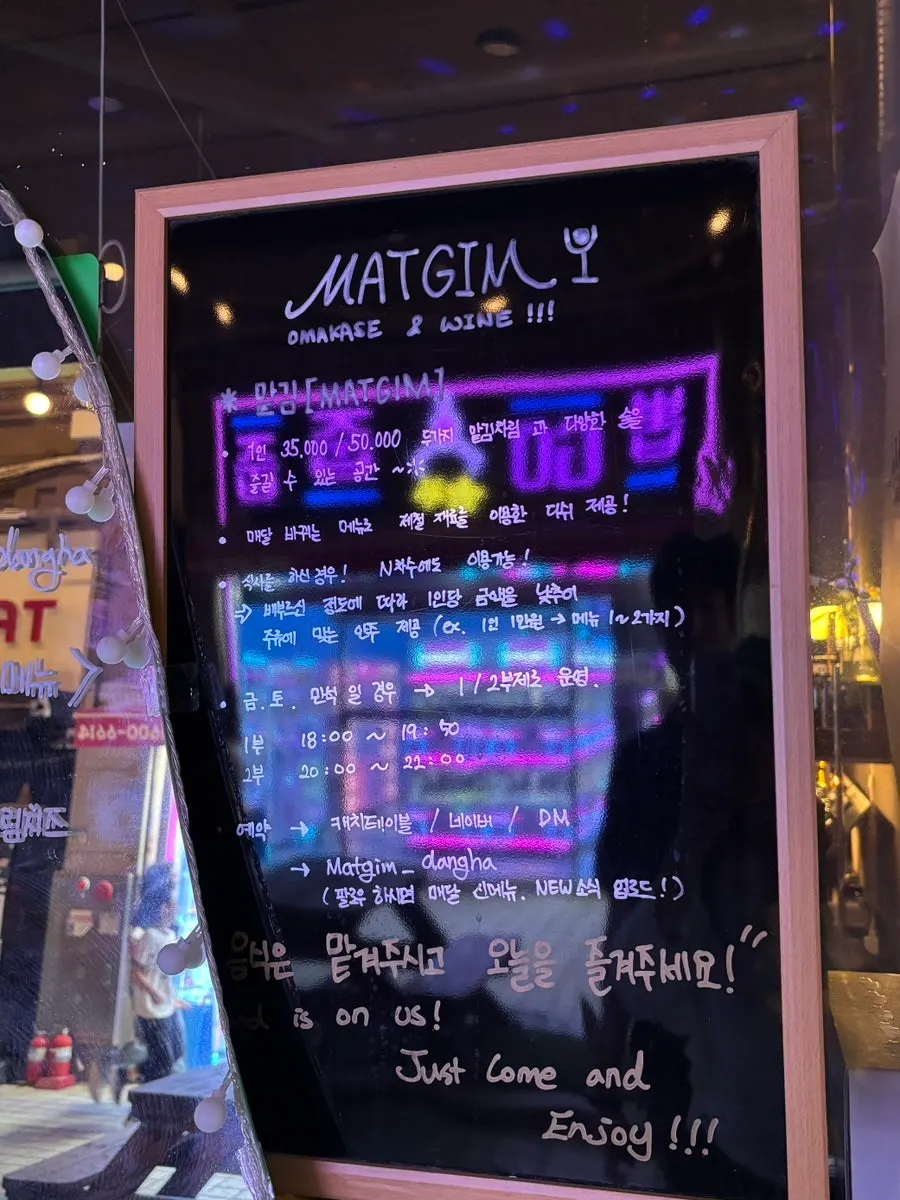 MATGIM
OMAKASE & WINE !!!
* 맡김 [MATGIM]
• 1인 35,000 / 50,000 두가지 맡김차림 과 다양한 술을
즐길 수 있는 공간 ~
• 매달 바뀌는 메뉴로 제철 재료를 이용한 디쉬 제공!
• 식사를 하신 경우! N차수에도 이용가능!
→ 배부르신 정도에 따라 1인당 금액을 낮추어
주류에 맞는 안주 제공 (ex. 1인 1만원 → 메뉴 1~2가지)
• 금. 토. 만석 일 경우 → 1/2부제로 운영.
1부 18:00 ~ 19:50
2부 20:00 ~ 22:00
예약 → 캐치테이블 / 네이버 / DM
→ Matgim_dangha
(팔로우 하시면 매달 신메뉴. NEW소식 업로드!)
음식은 맡겨주시고 오늘을 즐겨주세요!"
is on us!
Just Come and
Enjoy !!!
dangha
AT
메뉴
1600-6614